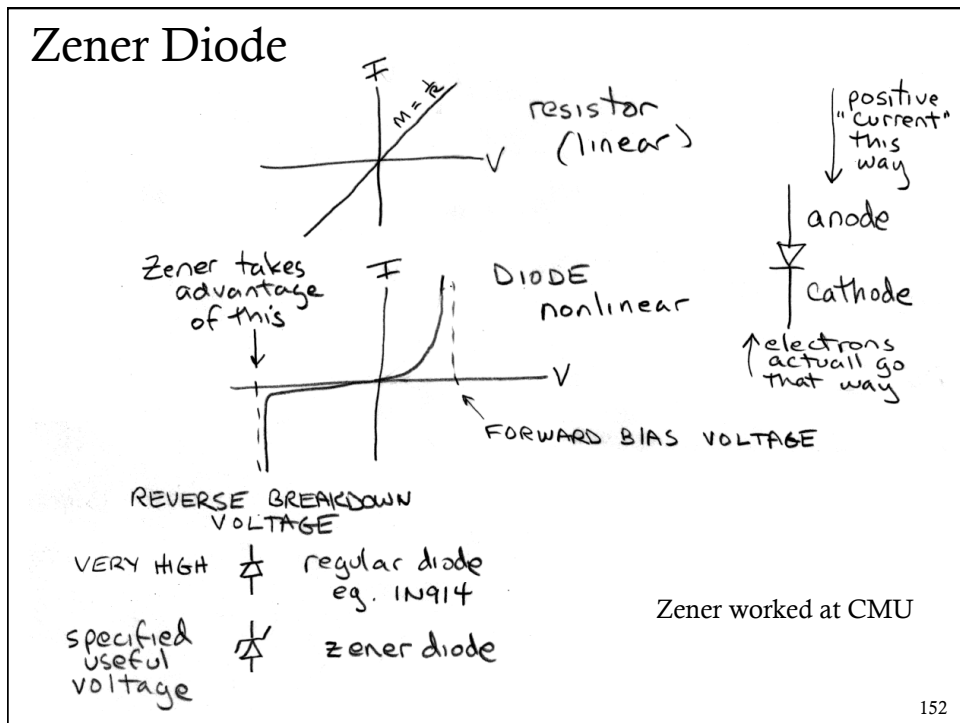 Zener Diode
I
M = 1/R
V
resistor
(linear)
positive
"current"
this
way
anode
cathode
electrons
actuall go
that way
Zener takes
advantage
of this
I
DIODE
nonlinear
V
FORWARD BIAS VOLTAGE
REVERSE BREAKDOWN
VOLTAGE
VERY HIGH
regular diode
eg. 1N914
specified
useful
voltage
zener diode
Zener worked at CMU
152